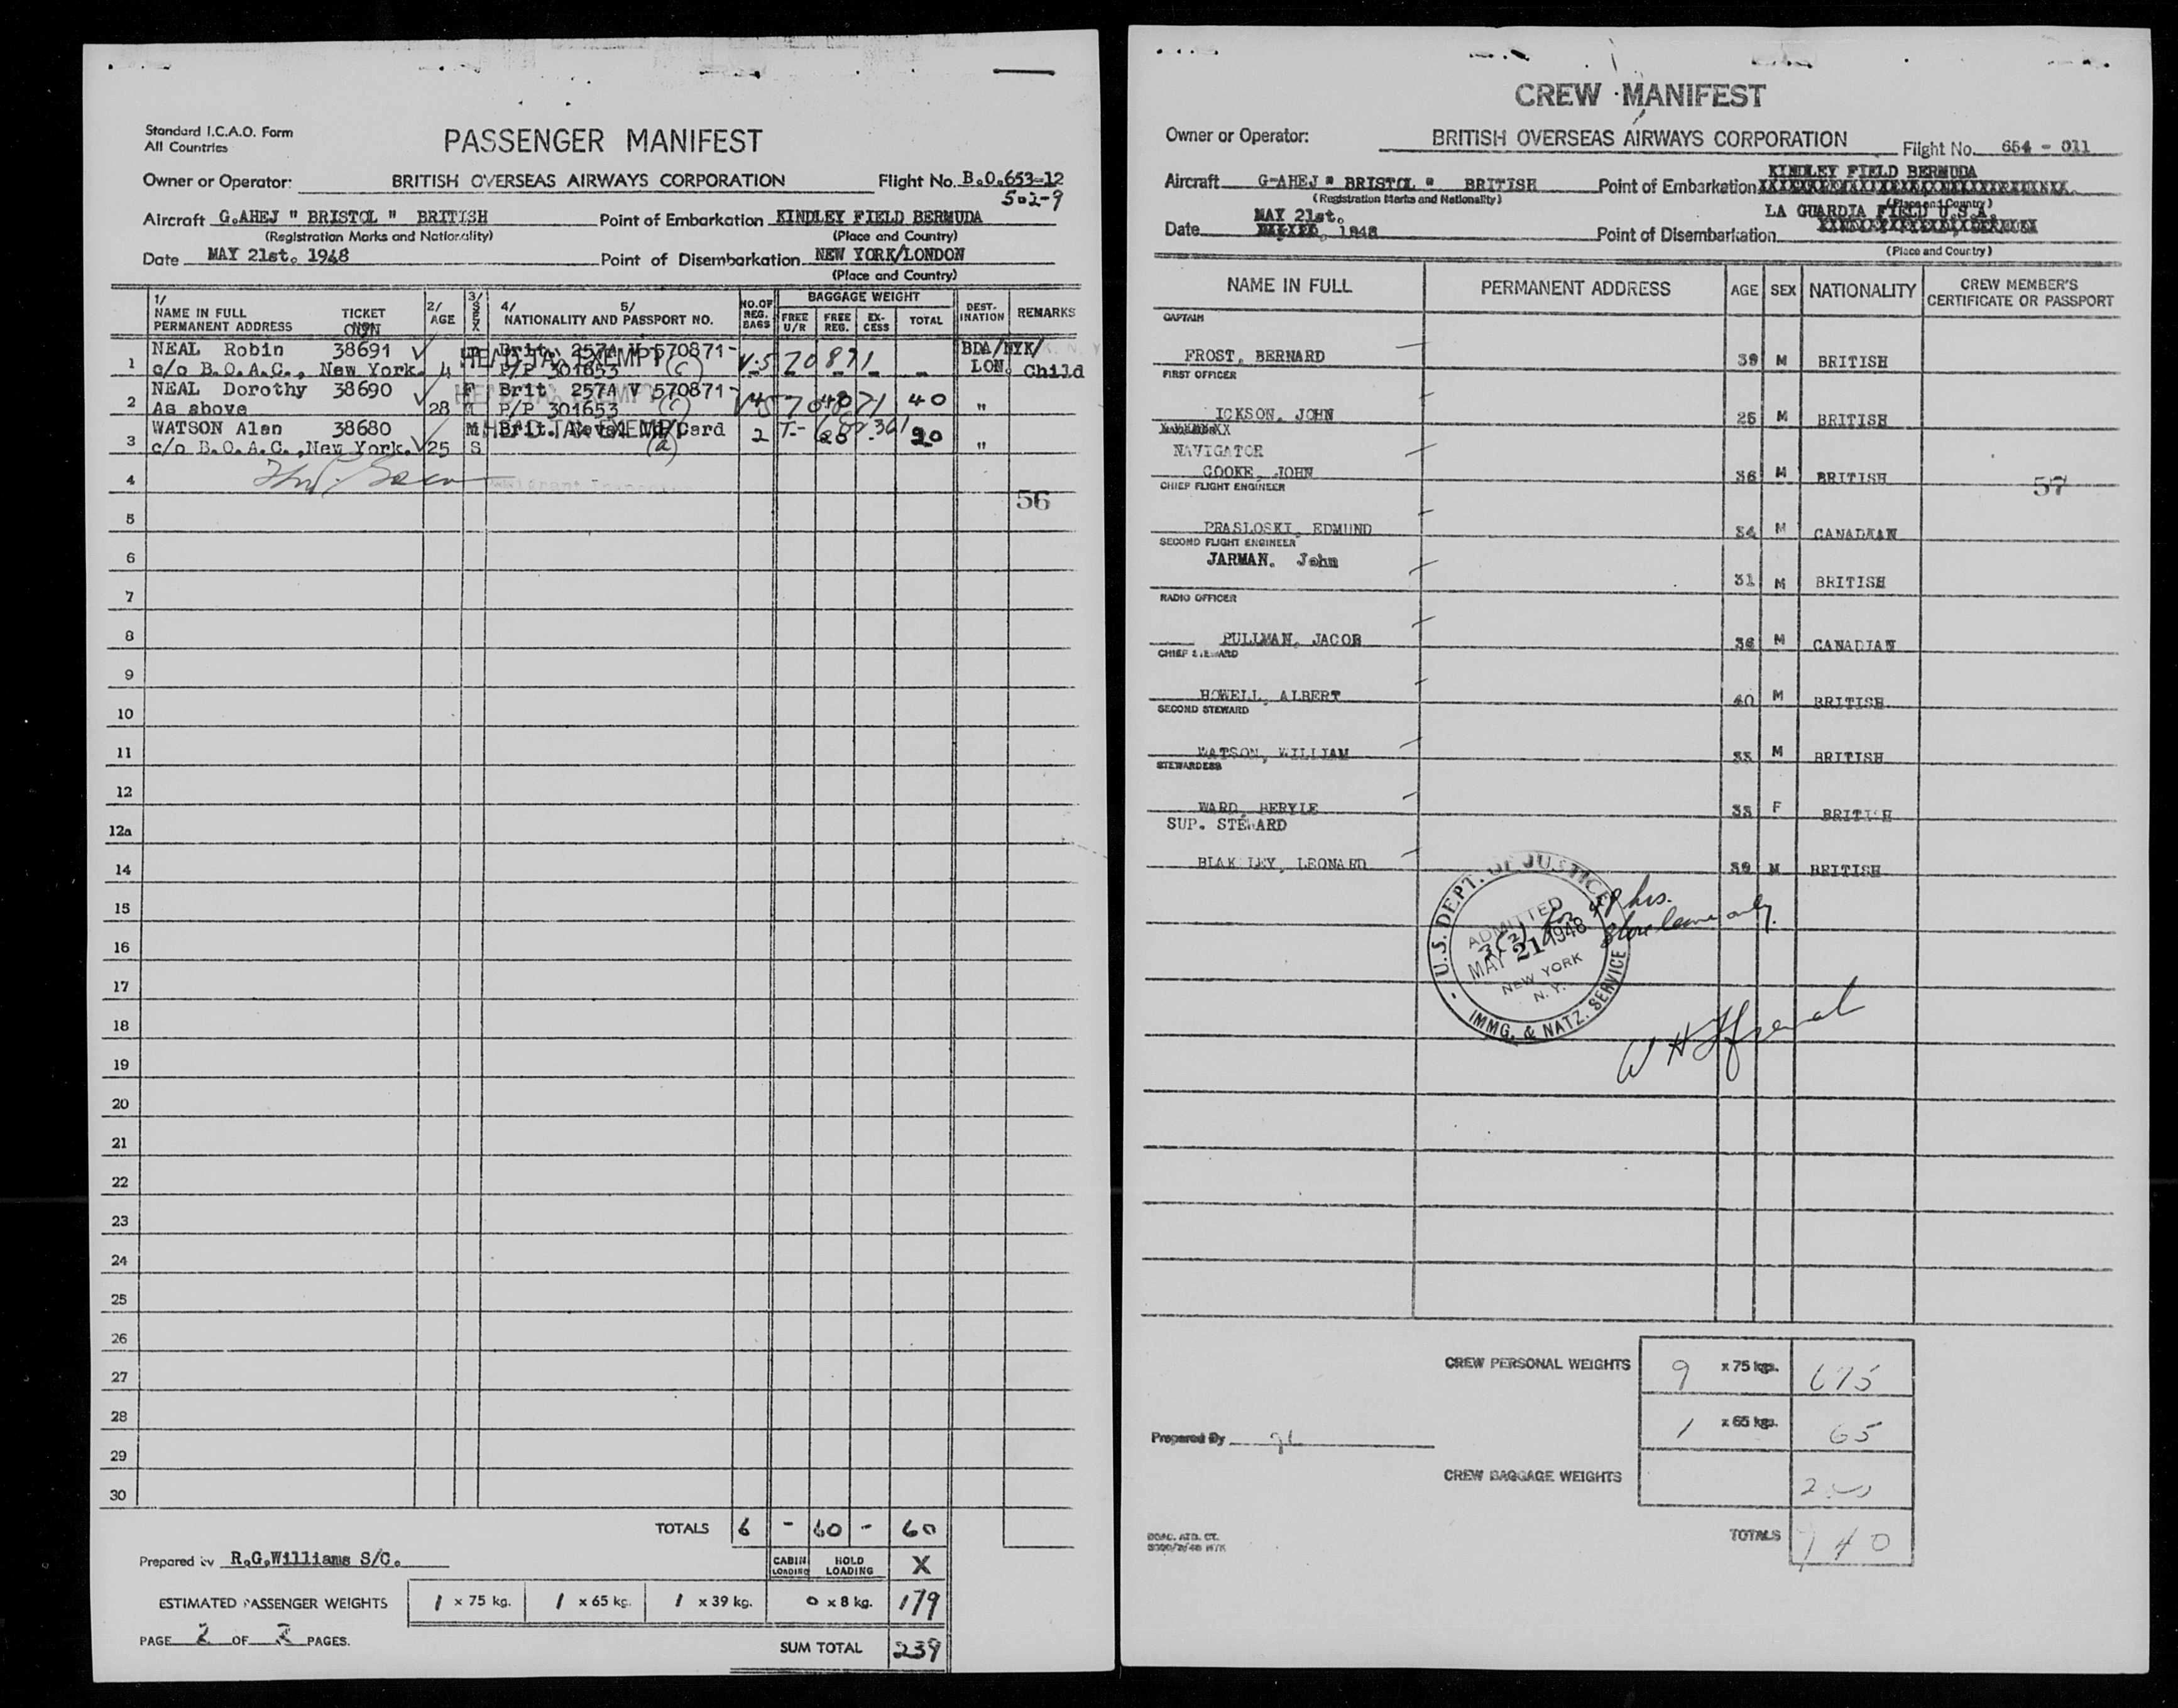 Standard I.C.A.O. Form
All Countries
PASSENGER MANIFEST
Owner or Operator: BRITISH OVERSEAS AIRWAYS CORPORATION Flight No. B.O.653-12
502-9
Aircraft G.AHEJ " BRISTOL " BRITISH Point of Embarkation KINDLEY FIELD BERMUDA
(Registration Marks and Nationality) (Place and Country)
Date MAY 21st. 1948 Point of Disembarkation NEW YORK/LONDON
(Place and Country)
1/ NAME IN FULL PERMANENT ADDRESS TICKET 2/ AGE 3/ SEX 4/ 5/ NATIONALITY AND PASSPORT NO. NO.OF REG. BAGS BAGGAGE WEIGHT FREE U/R FREE REG. EX-CESS TOTAL DEST-INATION REMARKS
1 NEAL Robin 38691 Brit. 257A V 570871- V.570871 BDA/NYK/
c/o B.O.A.C., New York. 4 P/P 301653 (c) - LON. Child
HEAD TAX EXEMPT
2 NEAL Dorothy 38690 F Brit 257A V 570871- 40
As above 28 M P/P 301653 (c) "
3 WATSON Alan 38680 M Brit. Card 2 20
c/o B.O.A.C., New York. 25 S (a) "
HEAD TAX EXEMPT
4
56
5
6
7
8
9
10
11
12
12a
14
15
16
17
18
19
20
21
22
23
24
25
26
27
28
29
30
TOTALS 6 - 60 - 60
Prepared by R.G.Williams S/C. CABIN LOADING HOLD LOADING X
ESTIMATED PASSENGER WEIGHTS 1 x 75 kg. 1 x 65 kg. 1 x 39 kg. 0 x 8 kg. 179
PAGE 2 OF 2 PAGES.
SUM TOTAL 239
CREW MANIFEST
Owner or Operator: BRITISH OVERSEAS AIRWAYS CORPORATION Flight No. 654 - 011
KINDLEY FIELD BERMUDA
Aircraft G-AHEJ " BRISTOL " BRITISH Point of Embarkation
(Registration Marks and Nationality) (Place and Country)
MAY 21st. LA GUARDIA FIELD U.S.A.
Date 1948 Point of Disembarkation
(Place and Country)
NAME IN FULL PERMANENT ADDRESS AGE SEX NATIONALITY CREW MEMBER'S CERTIFICATE OR PASSPORT
CAPTAIN
FROST, BERNARD 39 M BRITISH
FIRST OFFICER
ICKSON, JOHN 25 M BRITISH
NAVIGATOR
COOKE, JOHN 36 M BRITISH 57
CHIEF FLIGHT ENGINEER
PRASLOSKI, EDMUND 34 M CANADIAN
SECOND FLIGHT ENGINEER
JARMAN. John 31 M BRITISH
RADIO OFFICER
PULLMAN, JACOB 36 M CANADIAN
CHIEF STEWARD
HOWELL, ALBERT 40 M BRITISH
SECOND STEWARD
WATSON, WILLIAM 33 M BRITISH
STEWARDESS
WARD, BERYLE 33 F BRITISH
SUP. STEWARD
BLAK LEY, LEONARD 39 M BRITISH
U.S. DEPT. OF JUSTICE
ADMITTED
3(2) for 48 hrs.
shore leave only.
MAY 21 1948
NEW YORK
N.Y.
IMMG. & NATZ. SERVICE
CREW PERSONAL WEIGHTS 9 x 75 kgs. 675
1 x 65 kgs. 65
Prepared By
CREW BAGGAGE WEIGHTS
TOTALS